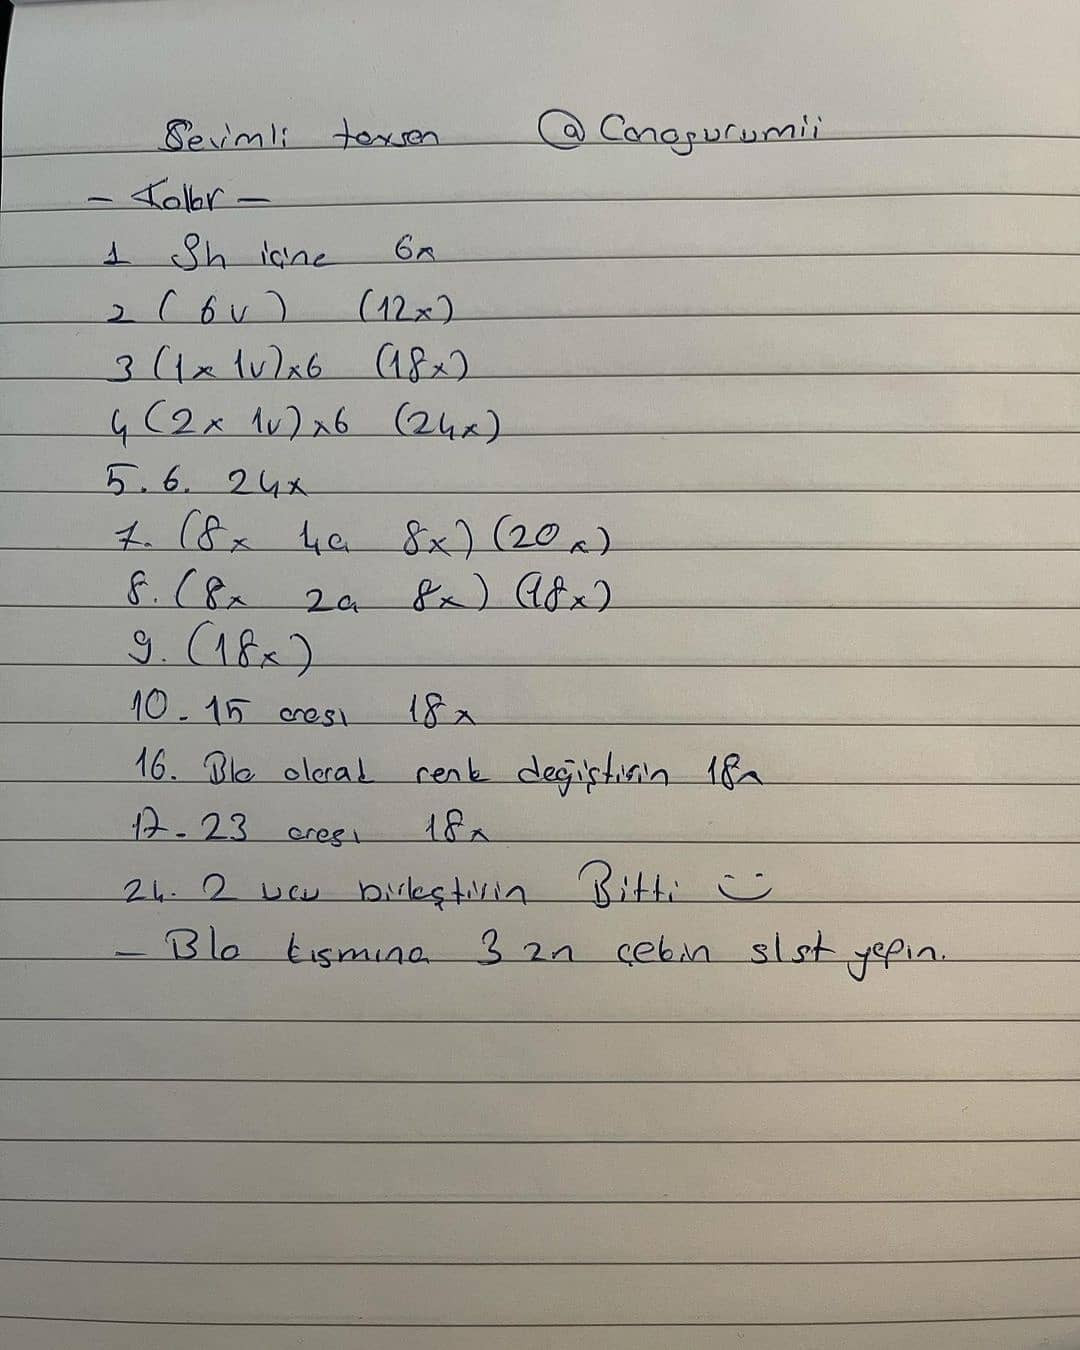 Sevimli tavşan @Canagurumii
- Kollar -
1 Sh içine 6x
2 (6v) (12x)
3 (1x 1v)x6 (18x)
4 (2x 1v)x6 (24x)
5.6. 24x
7. (8x 4a 8x) (20x)
8. (8x 2a 8x) (18x)
9. (18x)
10-15 arası 18x
16. Blo olarak renk değiştirin 18x
17-23 arası 18x
24. 2 ucu birleştirin Bitti :)
- Blo kısmına 3 zn çekin slst yapın.